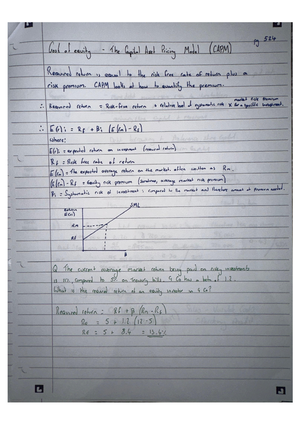 pg 524
Cost of equity - The Capital Asset Pricing Model (CAPM)
Required return is equal to the risk free rate of return plus a
risk premium. CAPM looks at how to quantify the premium.
∴ Required return = Risk-free return + relative level of systematic risk x market risk premium for a specific investment.
∴ E(r)i = Rf + Bi (E(Rm) - Rf)
where:
E(r)i = expected return on investment (required return)
Rf = Risk free rate of return
E(Rm) = The expected average return on the market, often written as Rm.
(E(Rm) - Rf) = equity risk premium (sometimes, average market risk premium)
Bi = Systematic risk of investment i compared to the market and therefore amount of premium needed.
Return
E(Ri)
SML
Rm
Rf
B
Q. The current average market return being paid on risky investments
is 12%, compared to 5% on Treasury bills. G Co has a beta of 1.2.
What is the required return of an equity investor in G Co?
Required return: Rf + B (Rm - Rf)
Re = 5 + 1.2 (12 - 5)
Re = 5 + 8.4 = 13.4%